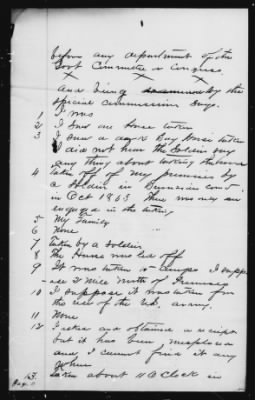 before any department of the
Govt Committee or Congress
X X X
And being examined by the
special commissioner says
1 I was
2 I had one Horse taken
3 I saw a dark Bay Horse taken
I did not hear the Soldier say
any thing about taking the horse
4 taken off of my premises by
a Soldier in
in Oct 1863 There was one
engaged in the taking
5 My Family
6 None
7 taken by a Soldier
8 The Horse was led off
9 It was taken to camps I suppose
2 Mile north of
10 I suppose it was taken for
the use of the U.S. army.
11 None
12 I asked and obtained a receipt
but it has been misplaced
and I cannot find it any
where
13. taken about 11 O Clock in